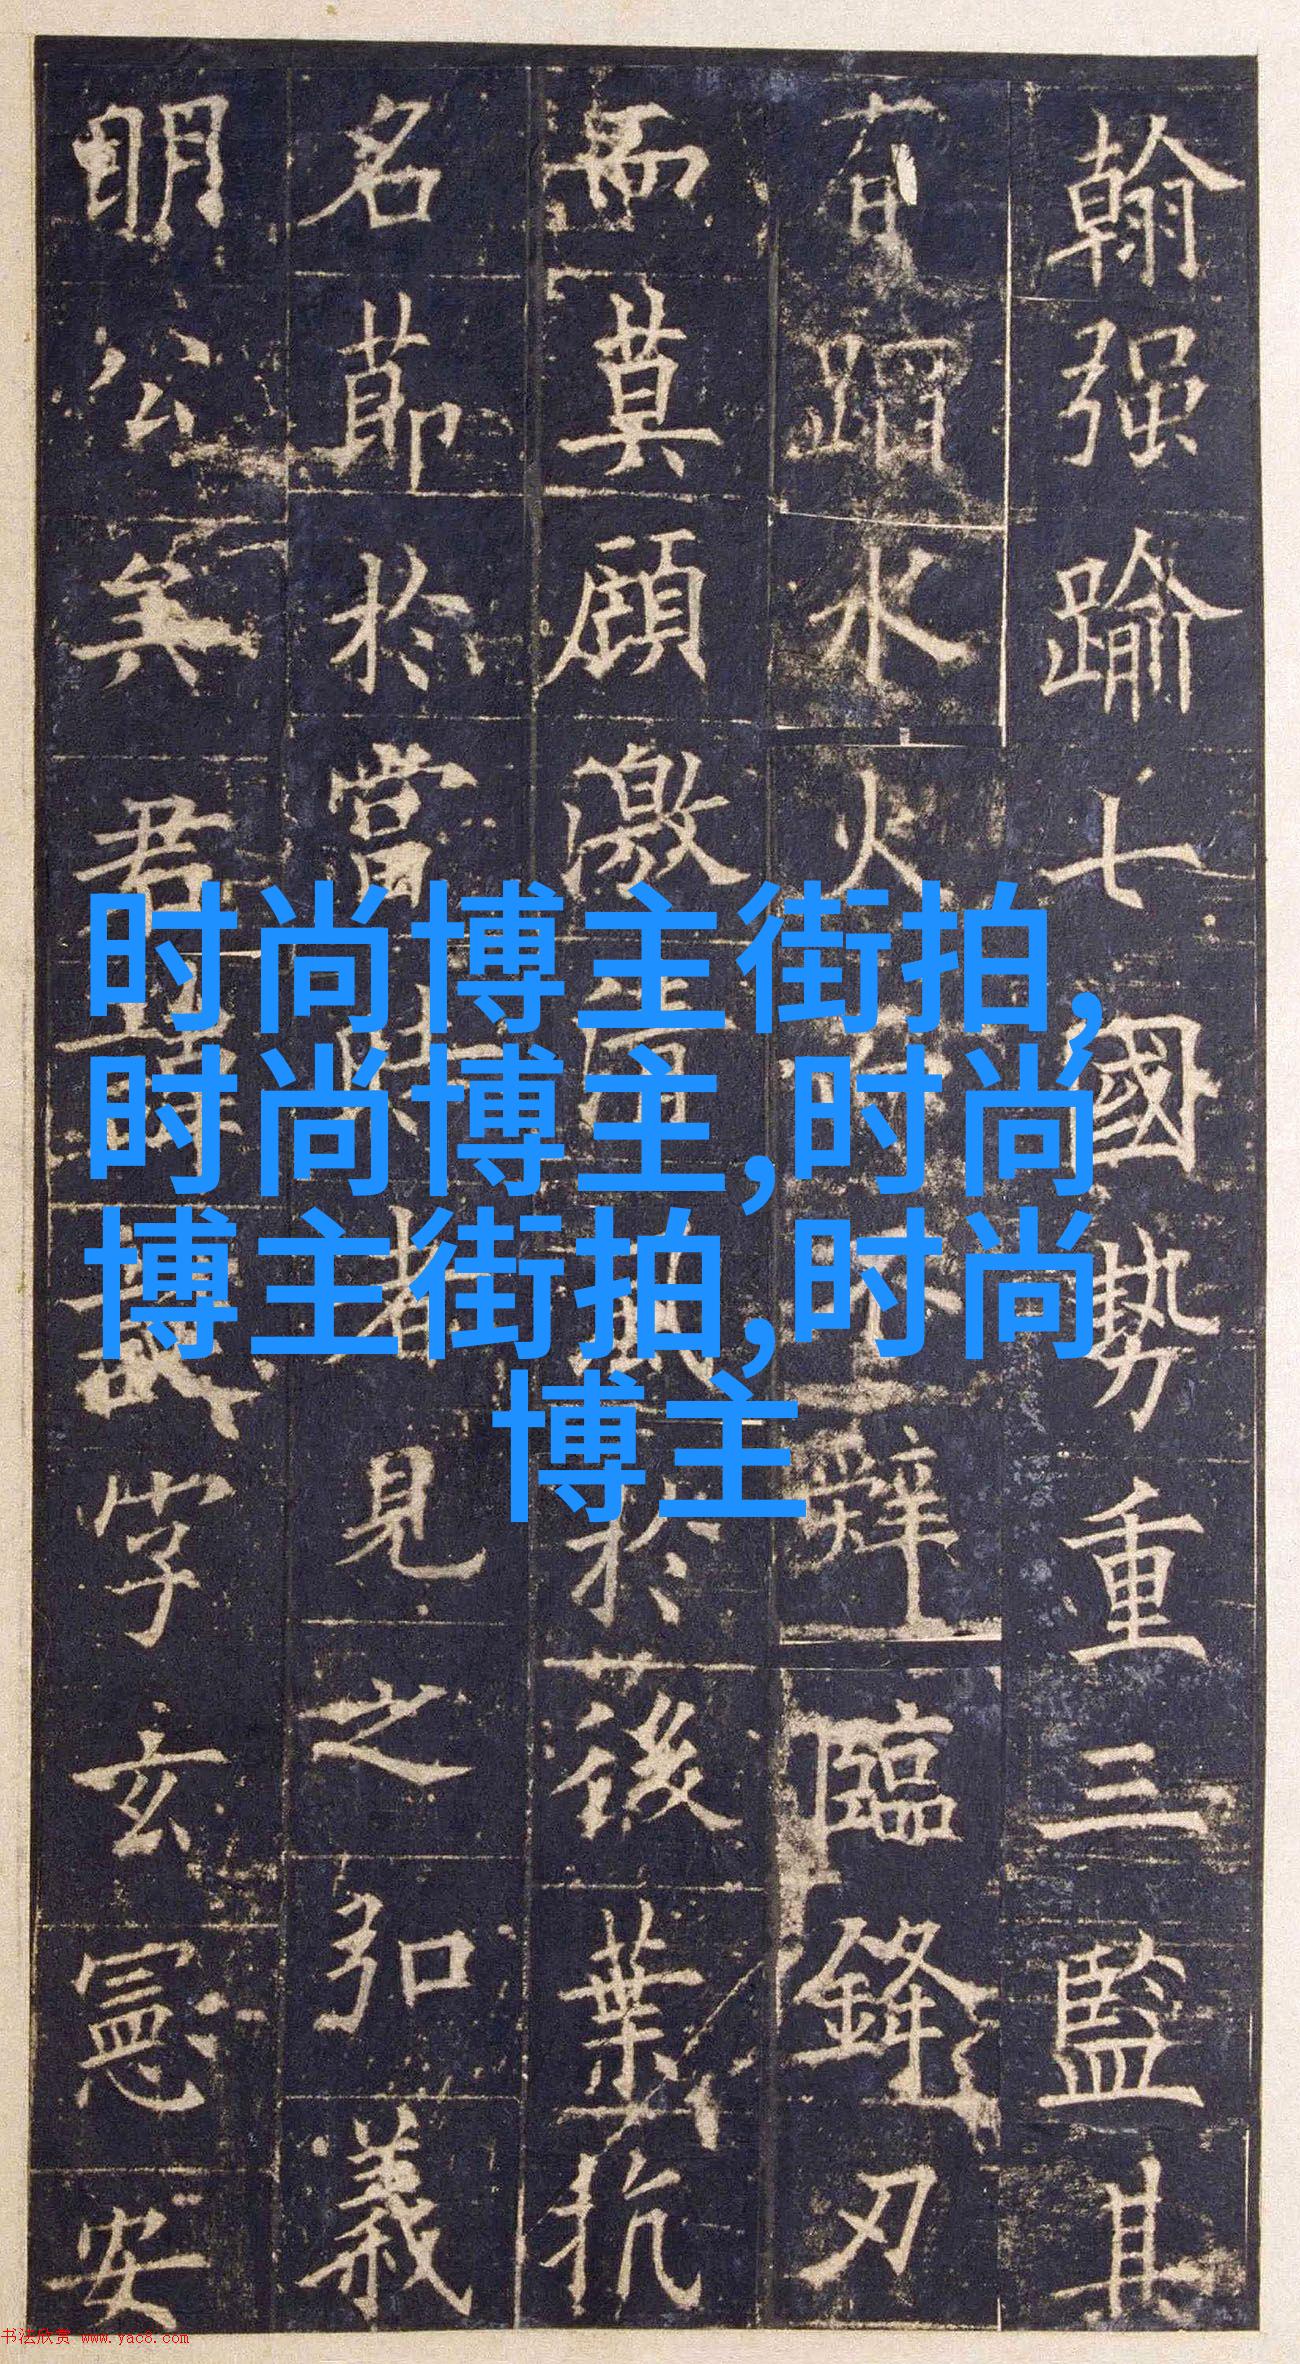 翰强踰七國勢重三監其
有蹈水火而不辭臨鋒刃
而莫顧激清風於後葉抗
名莭於當時者見之弘義
明公矣君諱誕字玄憲安
时尚博主街拍,
时尚博主,时尚
博主街拍,时尚
博主
书法欣赏 www.yac8.com